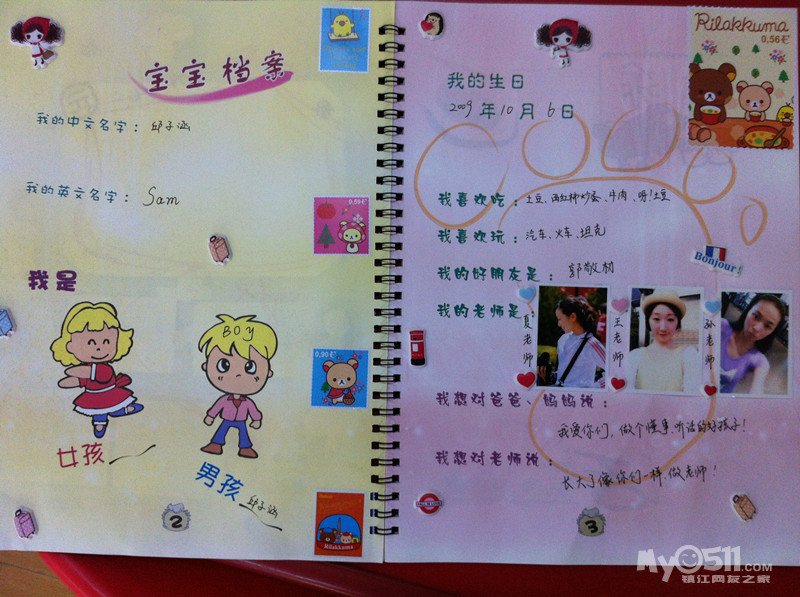 宝宝档案
我的中文名字：邱子涵
我的英文名字：Sam
我是
BOY
女孩
男孩 邱子涵
2
0,90€
Rilakkuma
Rilakkuma
0,56€
我的生日
2009年10月6日
我喜欢吃：土豆、西红柿炒蛋、牛肉、呀！土豆
我喜欢玩：汽车、火车、坦克
Bonjour!
我的好朋友是：郭敬
我的老师是：
夏老师
王老师
孙老师
我想对爸爸、妈妈说：
我爱你们，做个懂事、听话的好孩子！
我想对老师说：
长大了像你们一样，做老师！
3
My0511.com
镇江网友之家